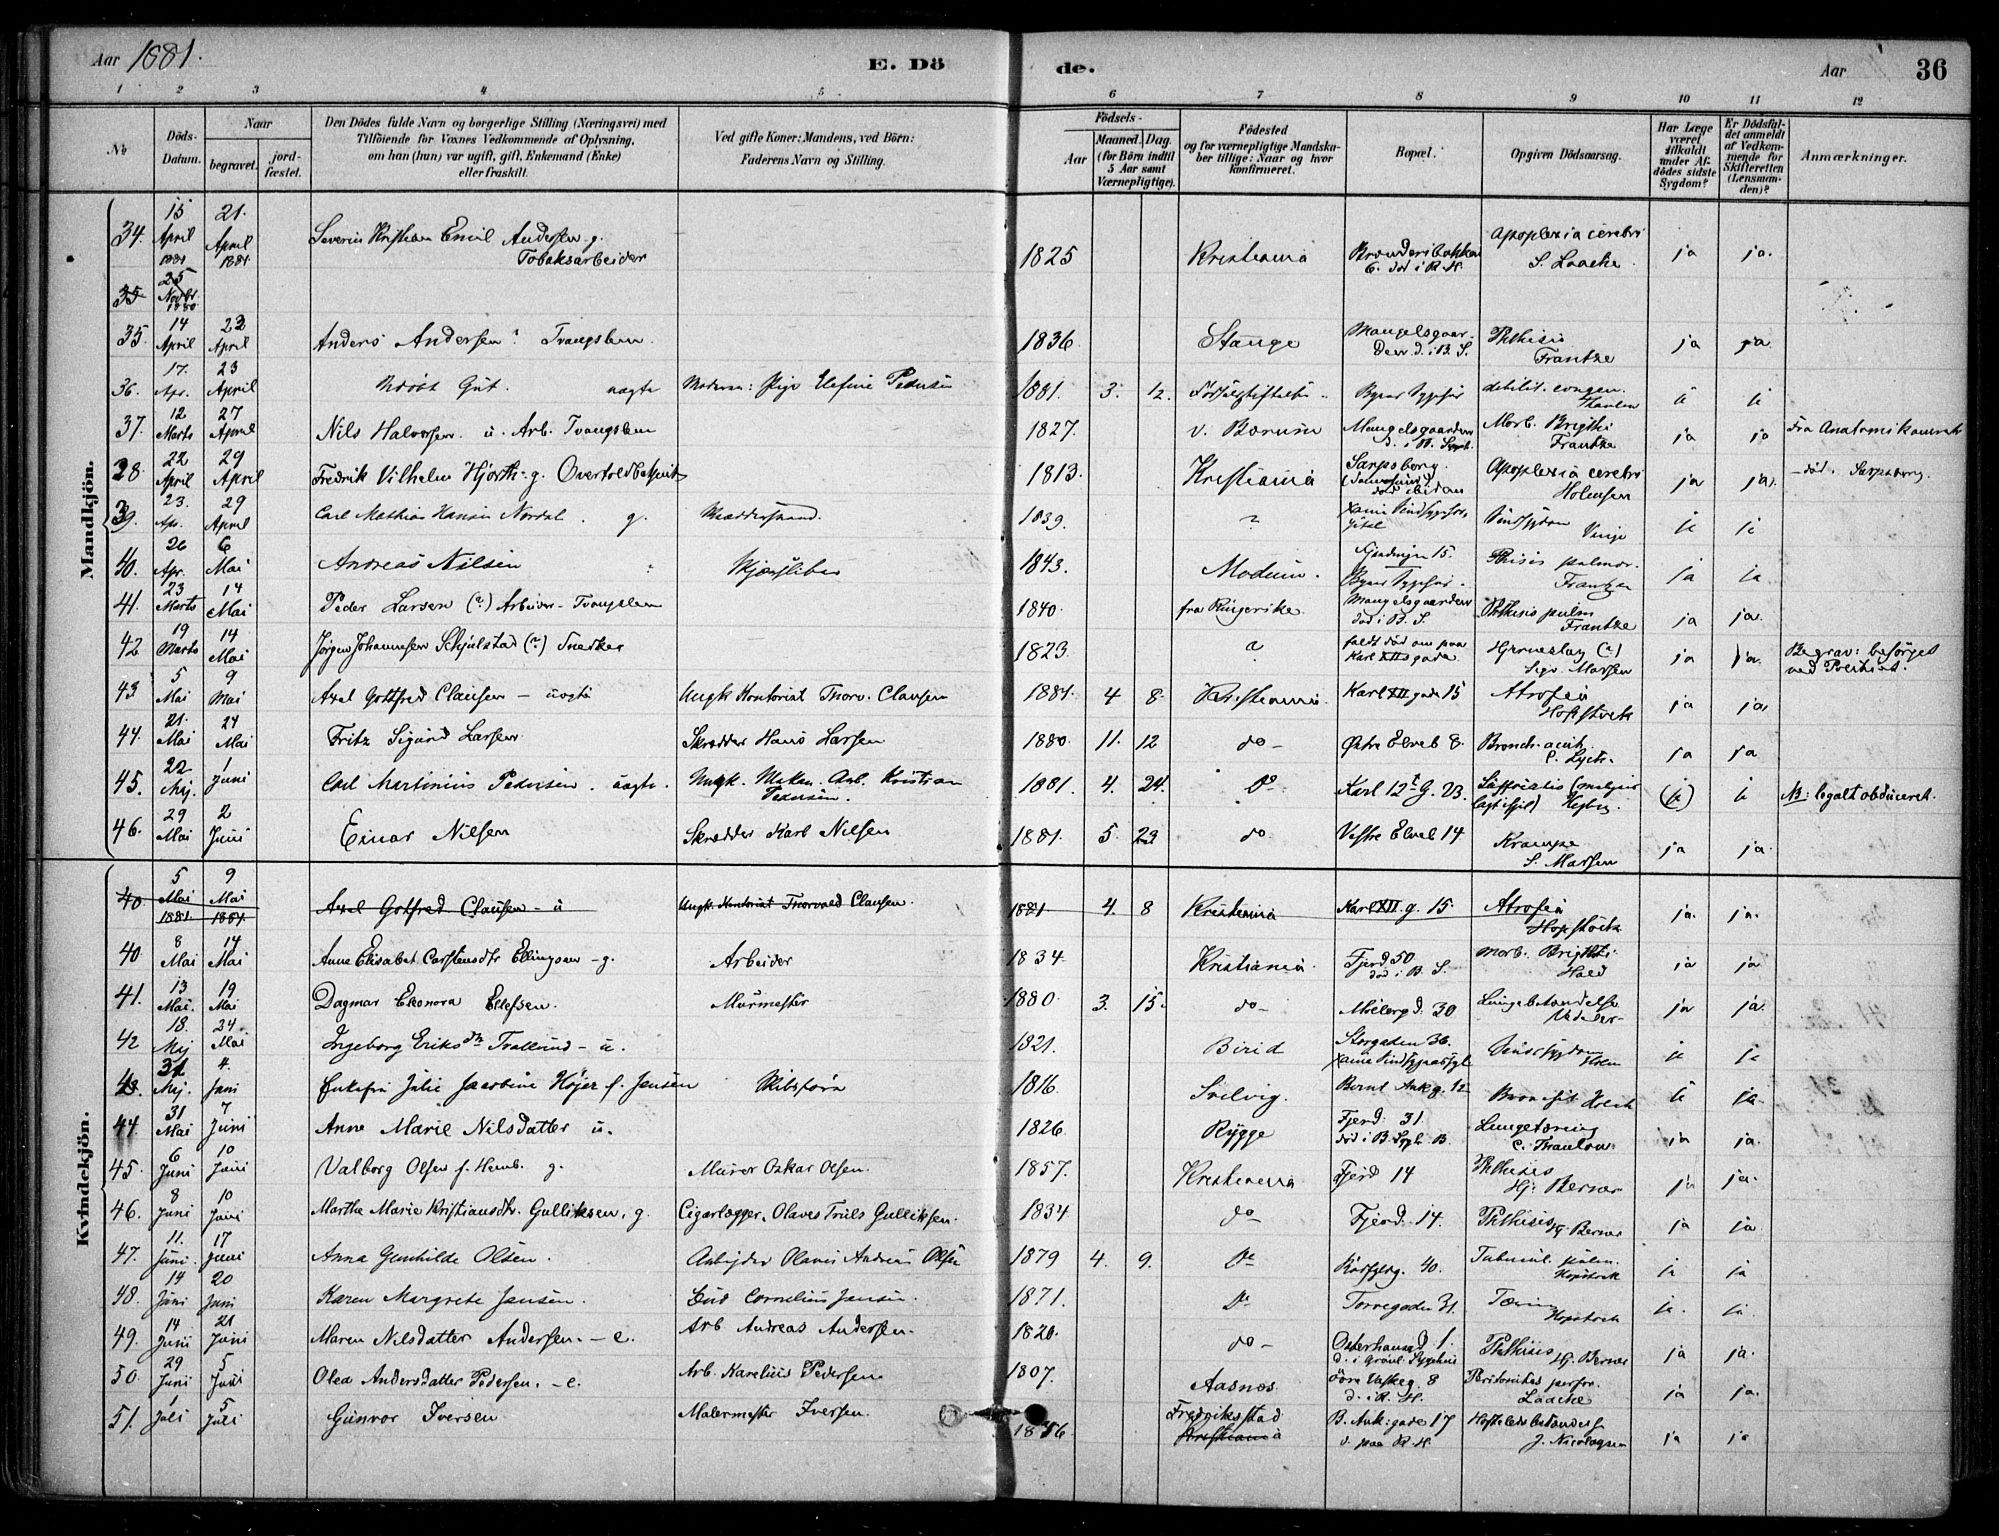 Aar 1881.
E. Dö
de.
Aar
36
1 2 3 4 5 6 7 8 9 10 11 12
No
Döds-Datum.
Naar
begravet.
jordfæstet.
Den Dödes fulde Navn og borgerlige Stilling (Næringsvei) med
Tilföiende for Voxnes Vedkommende af Oplysning,
om han (hun) var ugift, gift, Enkemand (Enke)
eller fraskilt.
Ved gifte Koner: Mandens, ved Börn:
Faderens Navn og Stilling.
Födsels-
Aar
Maaned. Dag.
(for Börn indtil
5 Aar samt
Værnepligtige).
Födested
og for værnepligtige Mandska-
ber tillige: Naar og hvor
konfirmeret.
Bopæl.
Opgiven Dödsaarsag.
Har Læge
været
tilkaldt
under Af-
dödes sidste
Sygdom?
Er Dödsfal-
det anmeldt
af Vedkom-
mende for
Skifteretten
(Lensman-
den)?
Anmærkninger.
Mandkjön.
34. 15 April 1881 21. April 1881. Severin Kristian Emil Andersen g. Tobaksarbeider 1825 Kristiania død i R. H. Apoplexia cerebri S. Laache ja ja.
35 25 Novbr. 1880
35. 14 April 23 April Anders Andersen Tvangslem 1836 Stange Mangelsgaarden d. i B. S. Phthisis Frantze ja ja
36. 17. Apr. 23 April Gut. uægte Moderen: Pige Pedersen 1881. 3. 12. Byens Sygehus debilit. congen.
37. 12 Marts 27 April Nils Halvorsen u. Arb. Tvangslem 1827. v. Bærum Mangelsgaarden d. i B. Sygeh. Morb. Brigthi Frantze ja ja Fra Anatomikamret
38. 22 April 29 April Fredrik Vilhelm Hjorth - g. 1813. Kristiania Sarpsborg. død ibidem Apoplexia cerebri Holmsen ja ja. død i Sarpsborg.
39. 23. Ap. 29 April Carl Mathias Hansen Nordal. g. 1839. Sindssygdom Vinje
40. 26 Apr. 6 Mai Andreas Nilsen 1843. Modum. 15. Byens Sygehus. Phtisis pulmon. Frantzen ja ja
41. 23 Marts 14 Mai Peder Larsen (?) Arbeider - Tvangslem 1840. fra Ringerike. Mangelsgaarden død i B. S. Phthisis pulm Frantze ja ja.
42 19 Marts 14 Mai Jørgen Johannesen Schjulstad (?) Snedker 1823. ? faldt død om paa Karl XII s gade Hjerneslag (?) Sign. Marssen ja ja. Begrav: besørget ved Politiet.
43 5 Mai 9 Mai Axel Gottfred Clausen - uægte Ungk. Kontorist Thorv. Clausen 1881. 4 8. Kristiania. Karl XII gade 15 Atrofia Hopstock ja ja.
44. 21. Mai 24 Mai Fritz Sigurd Larsen Skrædder Hans Larsen 1880. 11. 12 do - Østre Elveb 8. Bronch. acut ja ja
45. 22 Mj. 1 Juni Carl Martinius Pedersen. uægte. Ungk. Arb. Kristian Pedersen. 1881. 4. 24. Do Karl 12t G. 23. NB: legalt obduceret.
46. 29 Mai 2 Juni Einar Nilsen Skrædder Karl Nilsen 1881. 5. 23 do Vestre Elveb 14 Krampe S. Marssen ja ja.
Kvindekjön.
40. 5 Mai 1881. 9 Mai 1881. Axel Gotfred Clausen - u Ungk. Kontorist Thorvald Clausen. 1881 4. 8 Kristiania Karl XII g. 15 Atrofia Hopstock ja. ja.
40 8 Mai 14 Mai Anne Elisabet Carstensdtr Ellingsen - g. Arbeider 1834. Kristiania Fjerd 50 død i B. S. Morb. Brigthti Hald ja ja.
41. 13 Mai. 19 Mai Dagmar Eleonora Ellefsen. Murmester 1880 3. 15. do - 30 Lungebetændelse ja ja.
42 18. Mj 24 Mai Ingeborg Eriksdtr - u. 1821. Birid Storgaden 36. Sindssygdom
43. 31 Mj. 4. Juni Enkefru Julie Jacobine Højer f. Jansen Skibsførn 1816 Svelvig. Bernt Ankg. 12
44. 31 Mai 7 Juni Anne Marie Nilsdatter u. 1826 Rygge Fjerd 31 død i B. Sygh. B. Lungetæring ja ja.
45. 6 Juni 10 Juni Valborg Olsen f. Hemb. g. Murer Oskar Olsen. 1857. Kristiania Fjerd 14 Phthisis Hj. Berner ja ja.
46. 8 Juni 10 Juni Marthe Marie Kristiansdtr. Gulliksen. g. Cigarlægger. Olaves Truls Gulliksen. 1834 do - Fjerd. 14. Phthisis Hj Berner ja ja.
47. 11. Juni. 17 Juni Anna Gunhilde Olsen. Arbejder Olavis Andreas Olsen 1879 4. 9. Do 40. Hopstock ja ja
48. 14 Juni 20 Juni Karen Margrete Jansen. Bud Cornelius Jansen. 1871. Do Torvegaden 31. Tæring Hopstock
49. 14 Juni 21 Juni Maren Nilsdatter Andersen. - e. Arb Andreas Andersen. 1820. do - Osterhausgd 1. d. i Grønl. Sygehus Phthisis Hj. Berner ja ja.
50. 29 Juni 5 Juli Olea Andersdatter Pedersen. - e. Arb. Karelius Pedersen 1807. Aasnes. 8 d. i R. H. Peritonites perfor. Laache ja ja.
51. 1 Juli 5 Juli Gunvor Iversen Malermester Iversen. Fredriksstad Kristiania B. Ank: gade 17 paa R. H. J. Nicolaysen ja ja